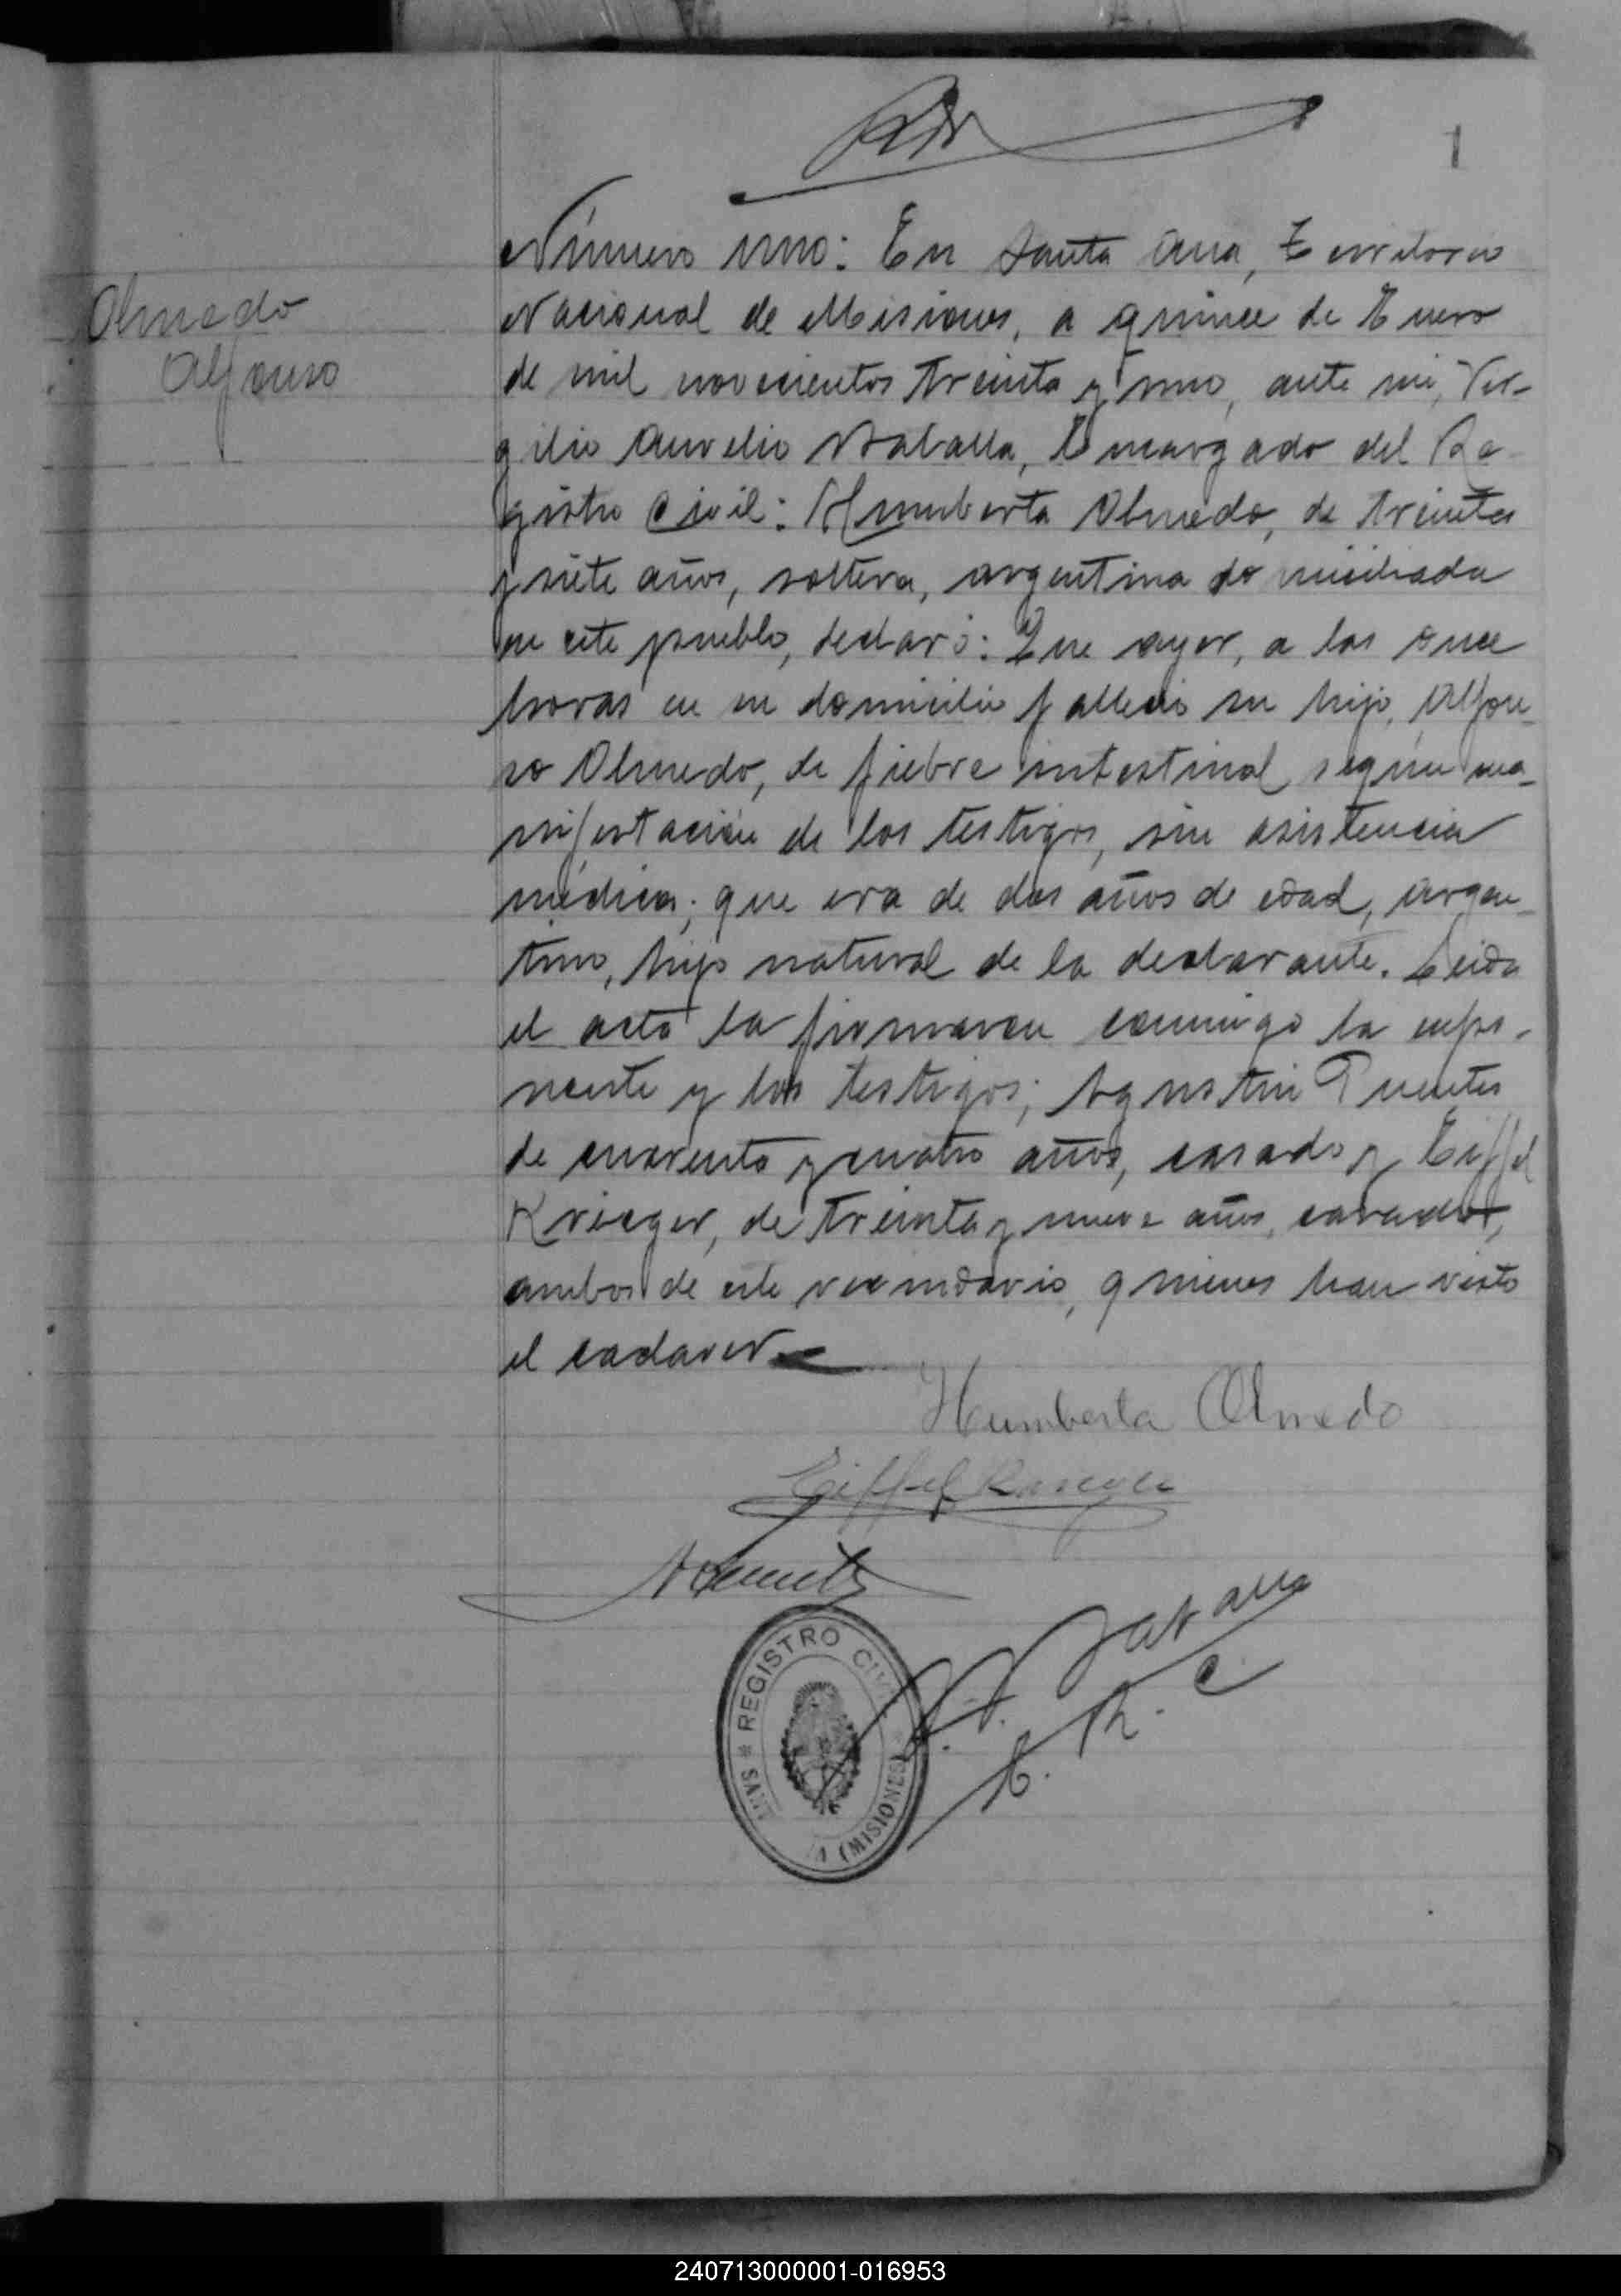 1
Olmedo
Alfonso
Número uno: En Santa Ana, Territorio
Nacional de Misiones, a quince de Enero
de mil novecientos treinta y uno, ante mi, Vir-
gilio Aurelio Zaballa, Encargado del Re-
gistro Civil: Humberta Olmedo, de treinta
y siete años, soltera, argentina domiciliada
en este pueblo, declaró: Que ayer, a las once
horas en su domicilio falleció su hijo, Alfon-
so Olmedo, de fiebre intestinal según ma-
nifestación de los testigos, sin asistencia
médica; que era de dos años de edad, argen-
tino, hijo natural de la declarante. Leida
el acta la firmaron conmigo la expo-
nente y los testigos; Agustin Puentes
de cuarenta y cuatro años, casado y Eiffel
Krieger, de treinta y nueve años, casado,
ambos de este vecindario, quienes han visto
el cadaver.
Humberta Olmedo
Eiffel
REGISTRO CIVIL
(MISIONES)
E. R. C.
240713000001-016953